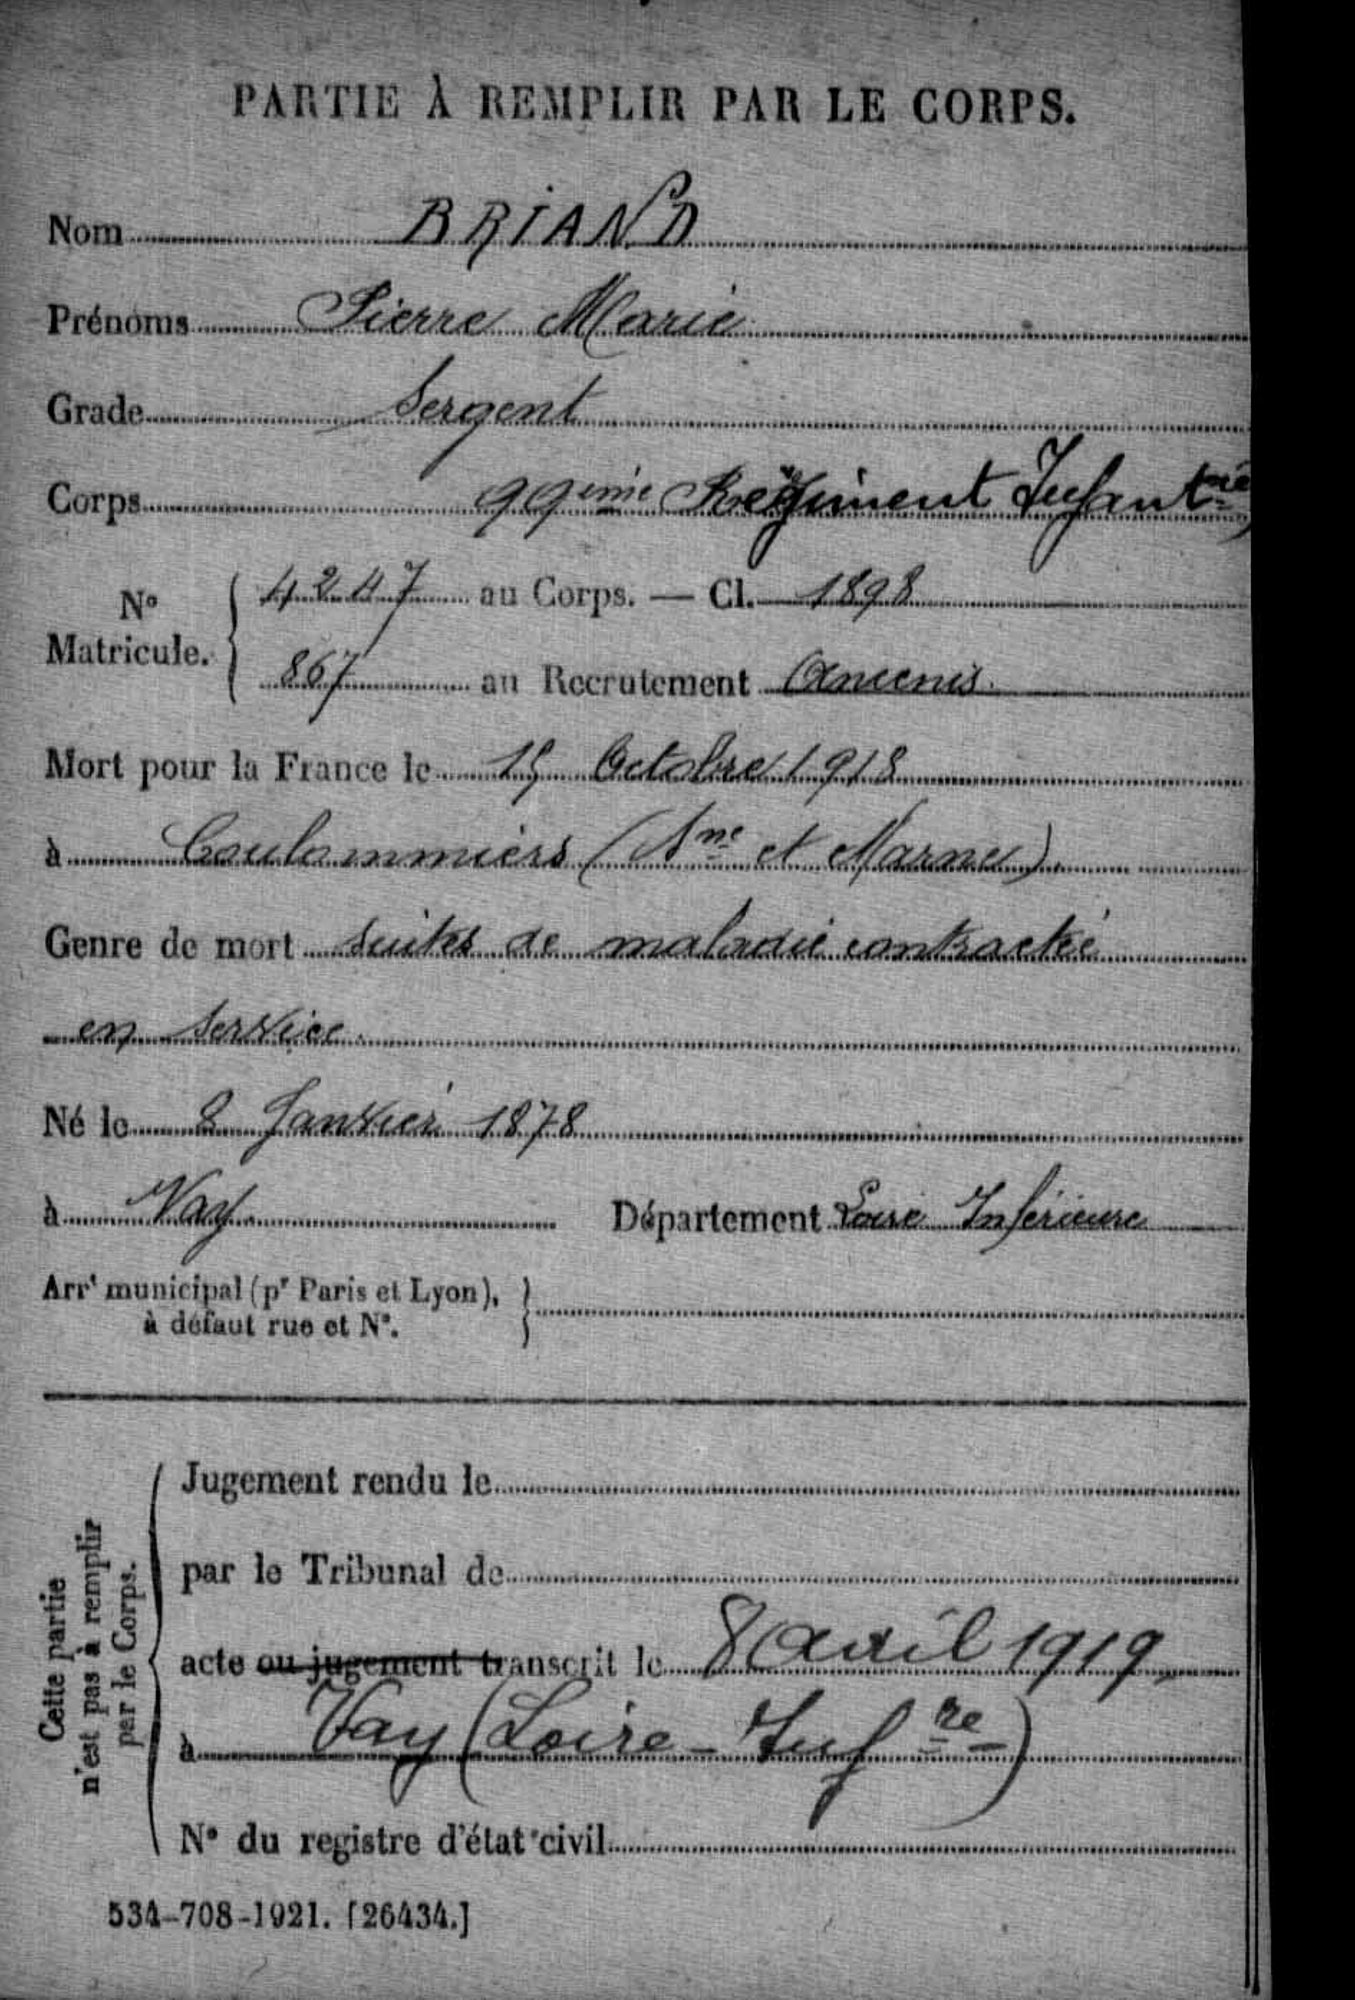 PARTIE À REMPLIR PAR LE CORPS.
Nom BRIAND
Prénoms Pierre Marie
Grade Sergent
Corps 99ème Régiment Infantrie
No Matricule. { 4247 au Corps. — Cl. 1898
867 au Recrutement Ancenis.
Mort pour la France le 15 Octobre 1918
à Coulommiers (Sne et Marne).
Genre de mort suites de maladie contractée
en service.
Né le 8 Janvier 1878
à Vay. Département Loire Inférieure
Arrt municipal (pr Paris et Lyon), }
à défaut rue et No.
Cette partie
n'est pas à remplir
par le Corps.
Jugement rendu le
par le Tribunal de
acte ou jugement transcrit le 8 Avril 1919
à Vay (Loire-Infre)
No du registre d'état civil
534-708-1921. [26434.]